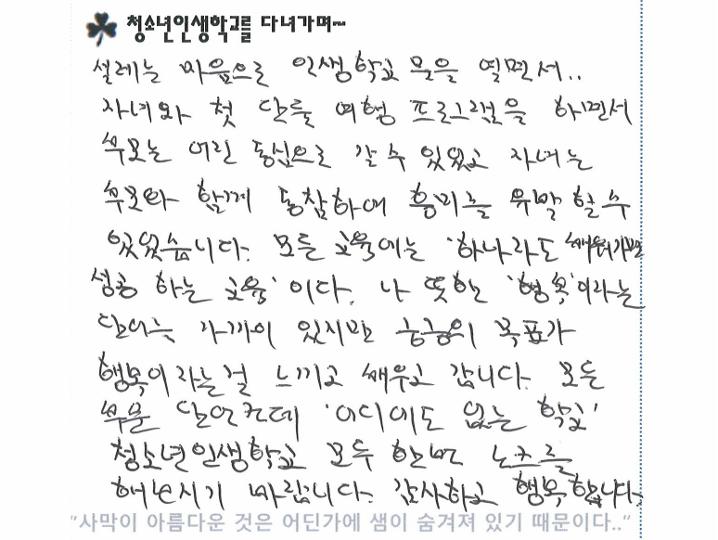 청소년인생학교를 다녀가며~
설레는 마음으로 인생학교 문을 열면서..
자녀와 첫 단둘 여행 프로그램을 하면서
부모는 어린 동심으로 갈 수 있었고 자녀는
부모와 함께 동참하여 흥미를 유발 할 수
있었습니다. 모든 교육에는 '하나라도 배워가면
성공 하는 교육' 이다. 나 또한 '행복'이라는
단어는 가까이 있지만 궁극의 목표가
행복이라는걸 느끼고 배우고 갑니다. 모든
부문 단언컨데 '어디에도 없는 학교'
청소년인생학교 모두 한번 노크를
해보시기 바랍니다. 감사하고 행복합니다.
"사막이 아름다운 것은 어딘가에 샘이 숨겨져 있기 때문이다.."